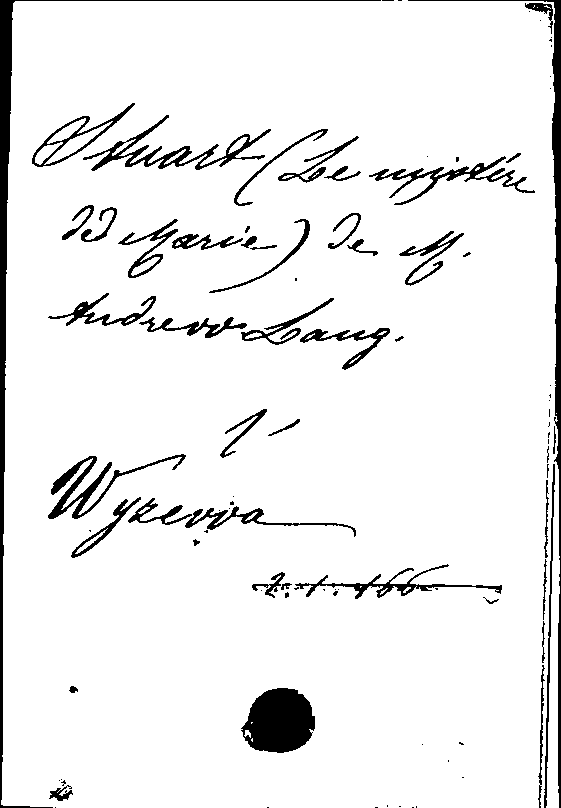 Stuart (Le mistére
di Marie) de M.
Andrew Lang.
V-
Wyzewa
2.1.166